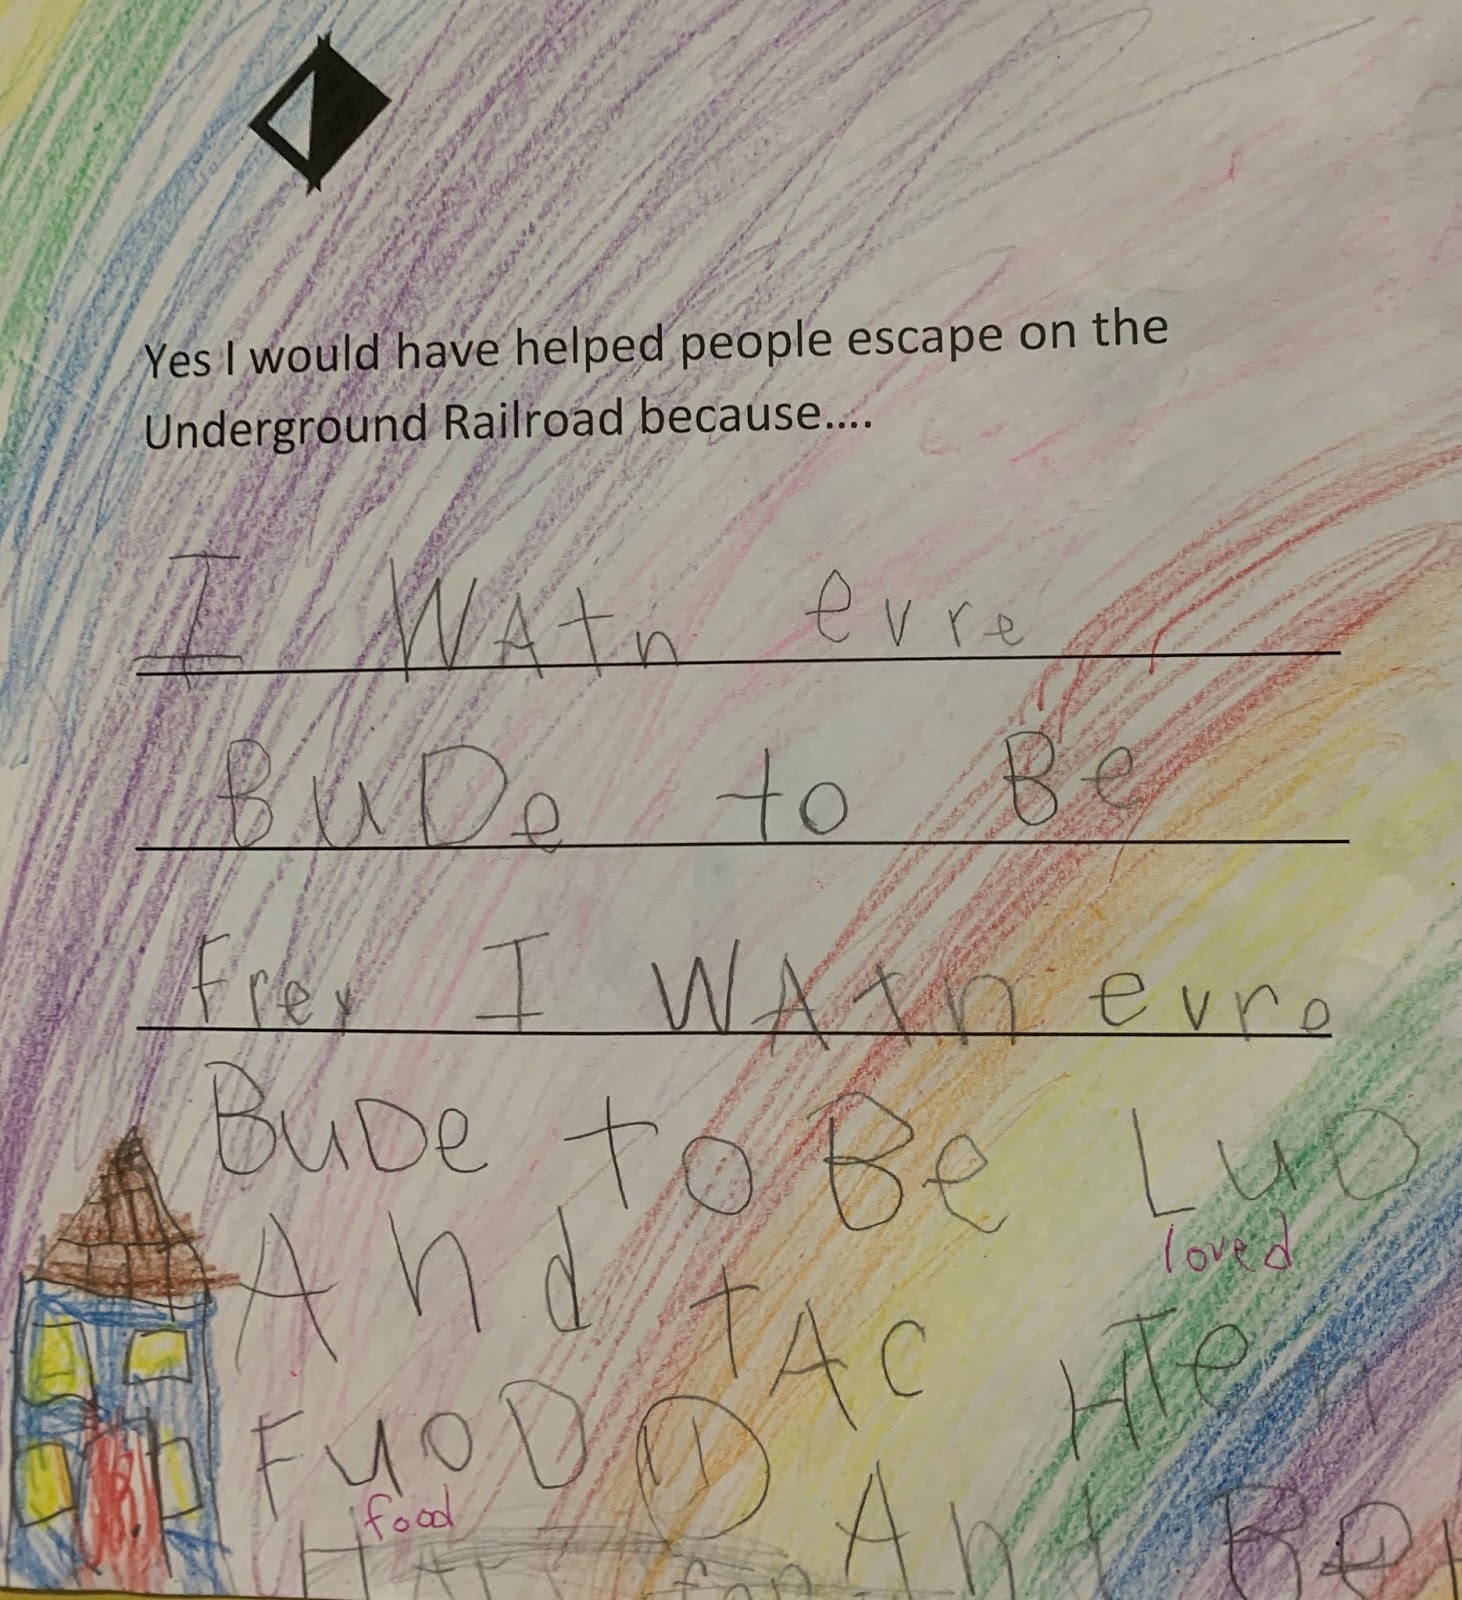 Yes I would have helped people escape on the
Underground Railroad because....
I WAtn evre
BuDe to Be
Frey I WAtn evre
BuDe to Be LuD
loved
And tAc HTen
FuoD And Be
food